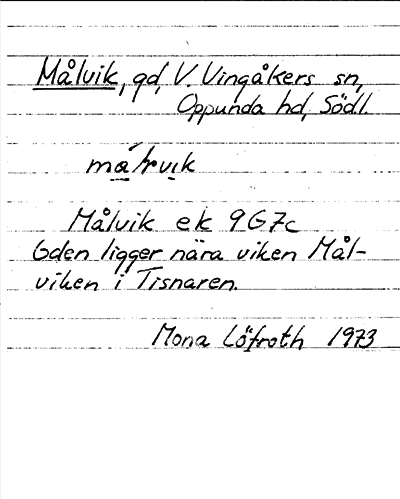 Målvik, gd, V. Vingåkers sn,
Oppunda hd, Södl.
Målvik ek 9G7c
Gden ligger nära viken Mål-
viken i Tisnaren.
Mona Löfroth 1973